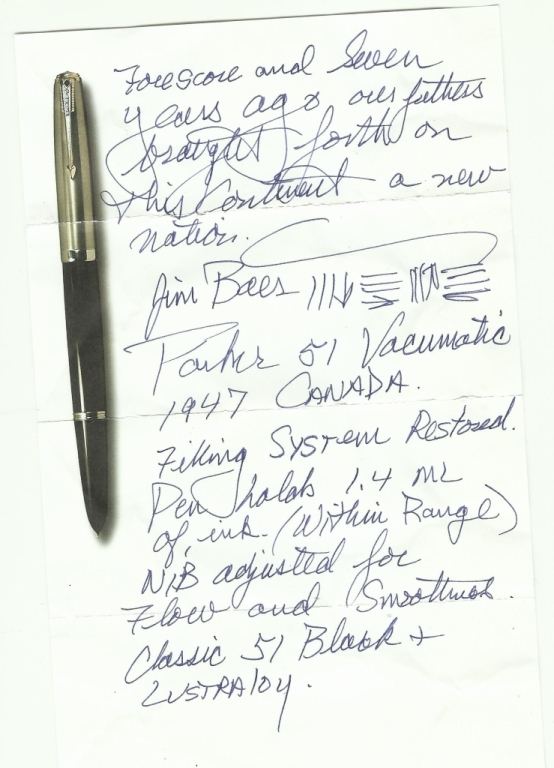 Forescore and Seven
years ago our fathers
brought forth on
this Continent a new
nation.
Jim Baes
Parker 51 Vacumatic
1947 CANADA.
Filling System Restored.
Pen holds 1.4 ML
of ink. (Within Range)
NIB adjusted for
Flow and Smoothness.
Classic 51 Black +
LUSTRALOY.